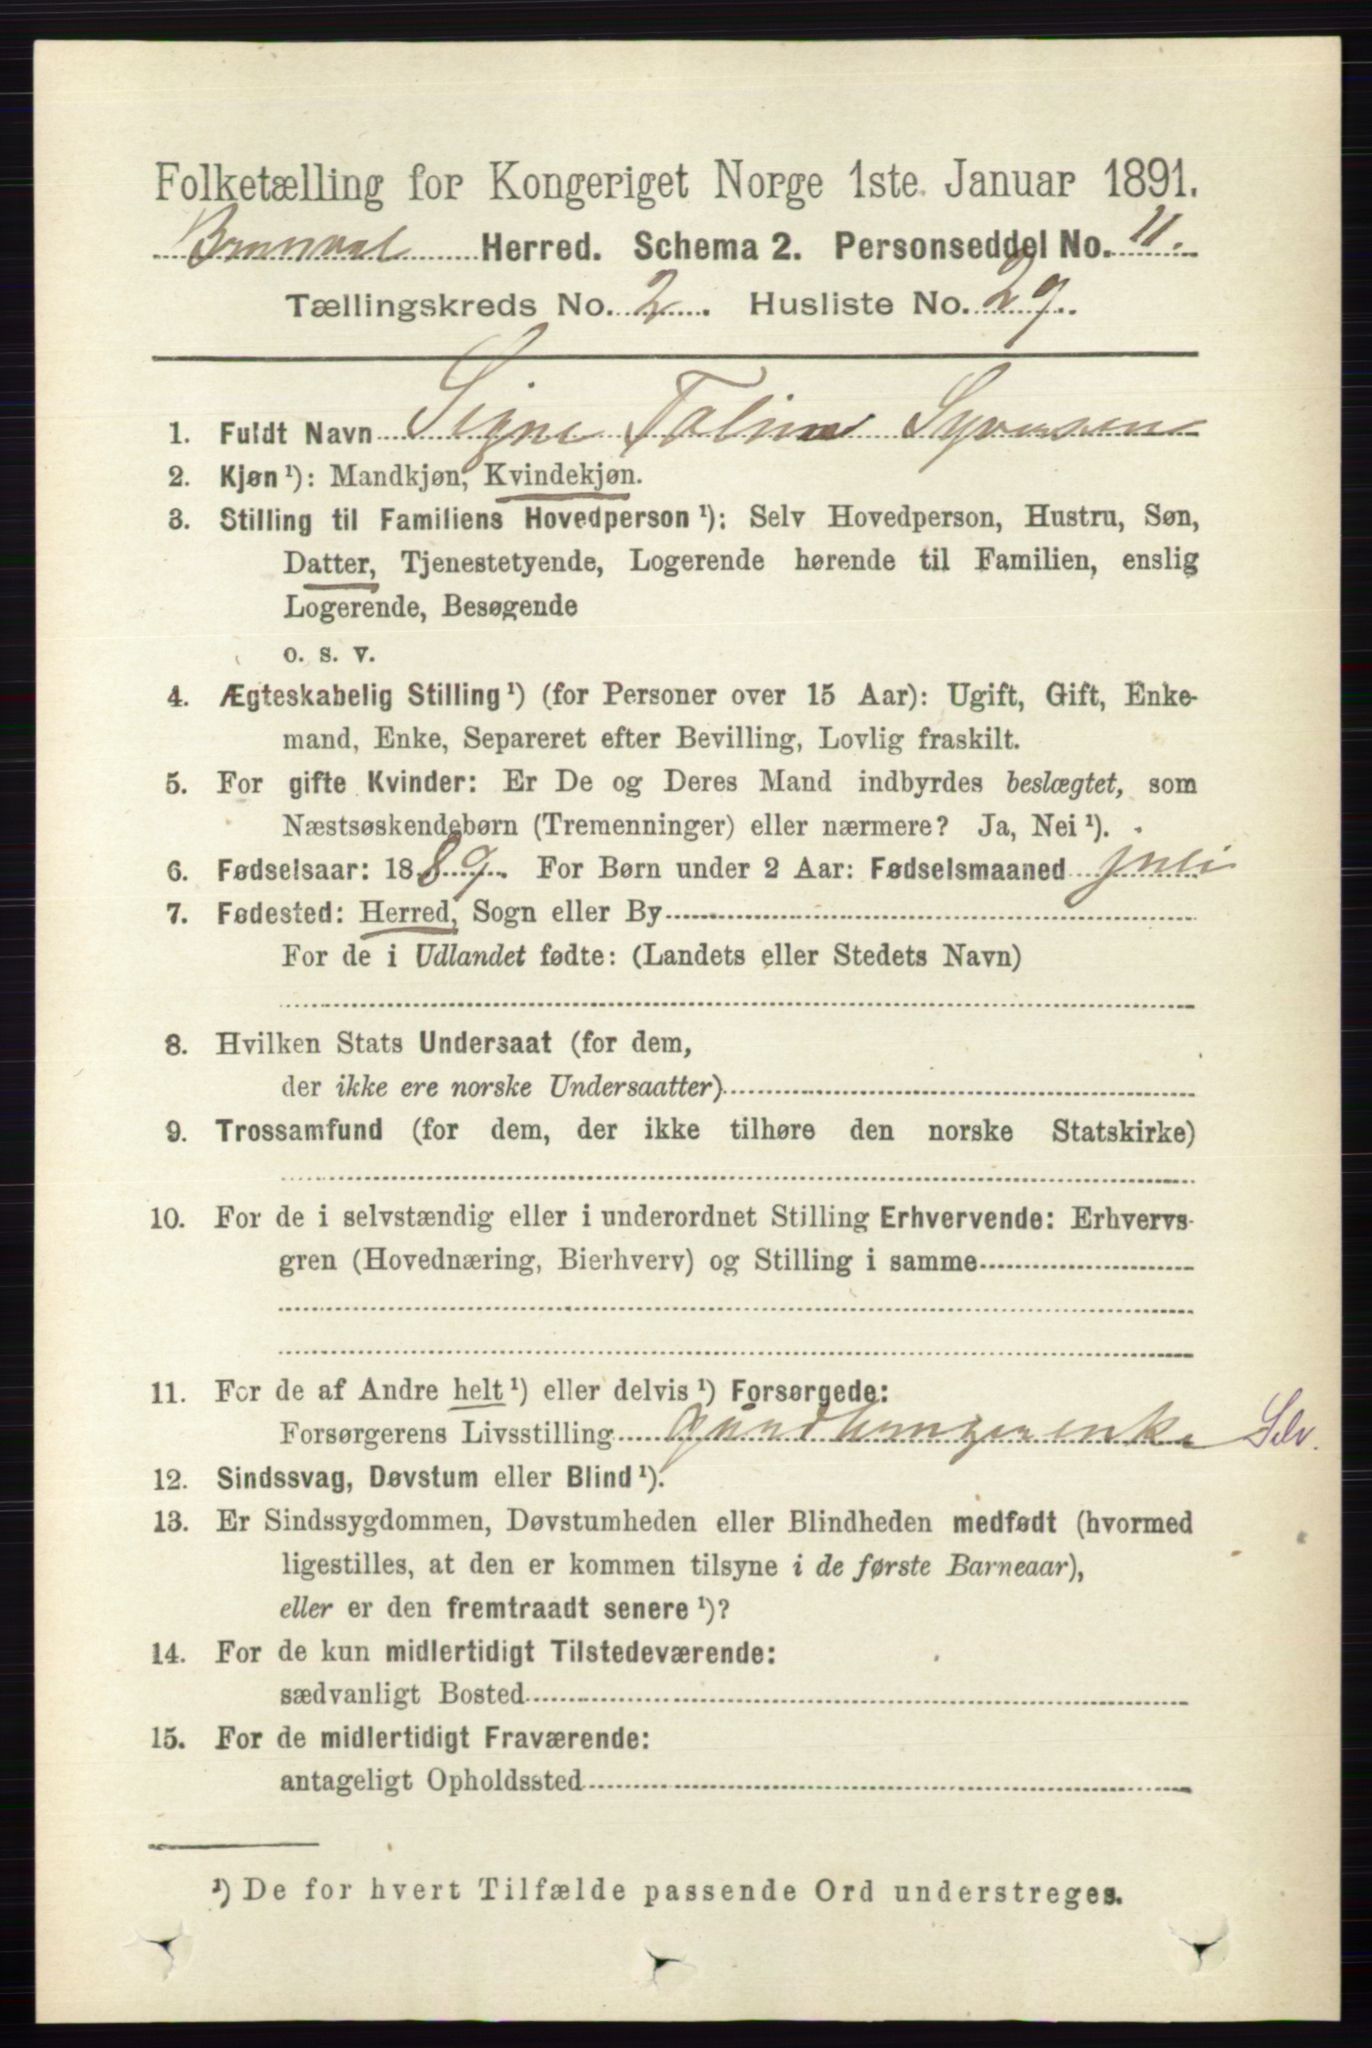 Folketælling for Kongeriget Norge 1ste Januar 1891.
Brunval Herred. Schema 2. Personseddel No. 11.
Tællingskreds No. 2. Husliste No. 29.
1. Fuldt Navn Signe Toline Syversen
2. Kjøn ¹): Mandkjøn, Kvindekjøn.
3. Stilling til Familiens Hovedperson ¹): Selv Hovedperson, Hustru, Søn,
Datter, Tjenestetyende, Logerende hørende til Familien, enslig
Logerende, Besøgende
o. s. v.
4. Ægteskabelig Stilling ¹) (for Personer over 15 Aar): Ugift, Gift, Enke-
mand, Enke, Separeret efter Bevilling, Lovlig fraskilt.
5. For gifte Kvinder: Er De og Deres Mand indbyrdes beslægtet, som
Næstsøskendebørn (Tremenninger) eller nærmere? Ja, Nei ¹).
6. Fødselsaar: 1889. For Børn under 2 Aar: Fødselsmaaned juli
7. Fødested: Herred, Sogn eller By
For de i Udlandet fødte: (Landets eller Stedets Navn)
8. Hvilken Stats Undersaat (for dem,
der ikke ere norske Undersaatter)
9. Trossamfund (for dem, der ikke tilhøre den norske Statskirke)
10. For de i selvstændig eller i underordnet Stilling Erhvervende: Erhvervs-
gren (Hovednæring, Bierhverv) og Stilling i samme
11. For de af Andre helt ¹) eller delvis ¹) Forsørgede:
Forsørgerens Livsstilling Selv.
12. Sindssvag, Døvstum eller Blind ¹).
13. Er Sindssygdommen, Døvstumheden eller Blindheden medfødt (hvormed
ligestilles, at den er kommen tilsyne i de første Barneaar),
eller er den fremtraadt senere ¹)?
14. For de kun midlertidigt Tilstedeværende:
sædvanligt Bosted
15. For de midlertidigt Fraværende:
antageligt Opholdssted
¹) De for hvert Tilfælde passende Ord understreges.